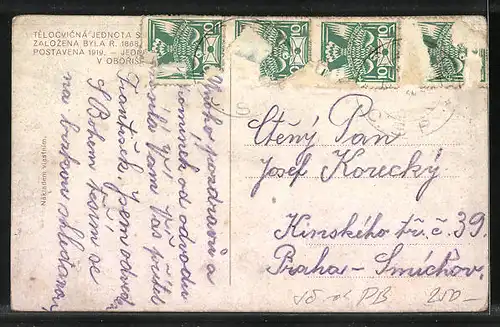 TĚLOCVIČNÁ JEDNOTA S
ZALOŽENA BYLA R. 1868,
POSTAVENA 1919. — JEDN
V OBOŘIŠ
Nákladem vlastním.
10 10 10
Mnoho pozdravů a
vzpomínek od odvodu
Váš přítel
František. Jsem odved
S Bohem těším se
na brzkou shledanou
Ctěný Pan
Josef Korecký
Kinského tř. č. 39.
Praha-Smíchov.
PB 250-